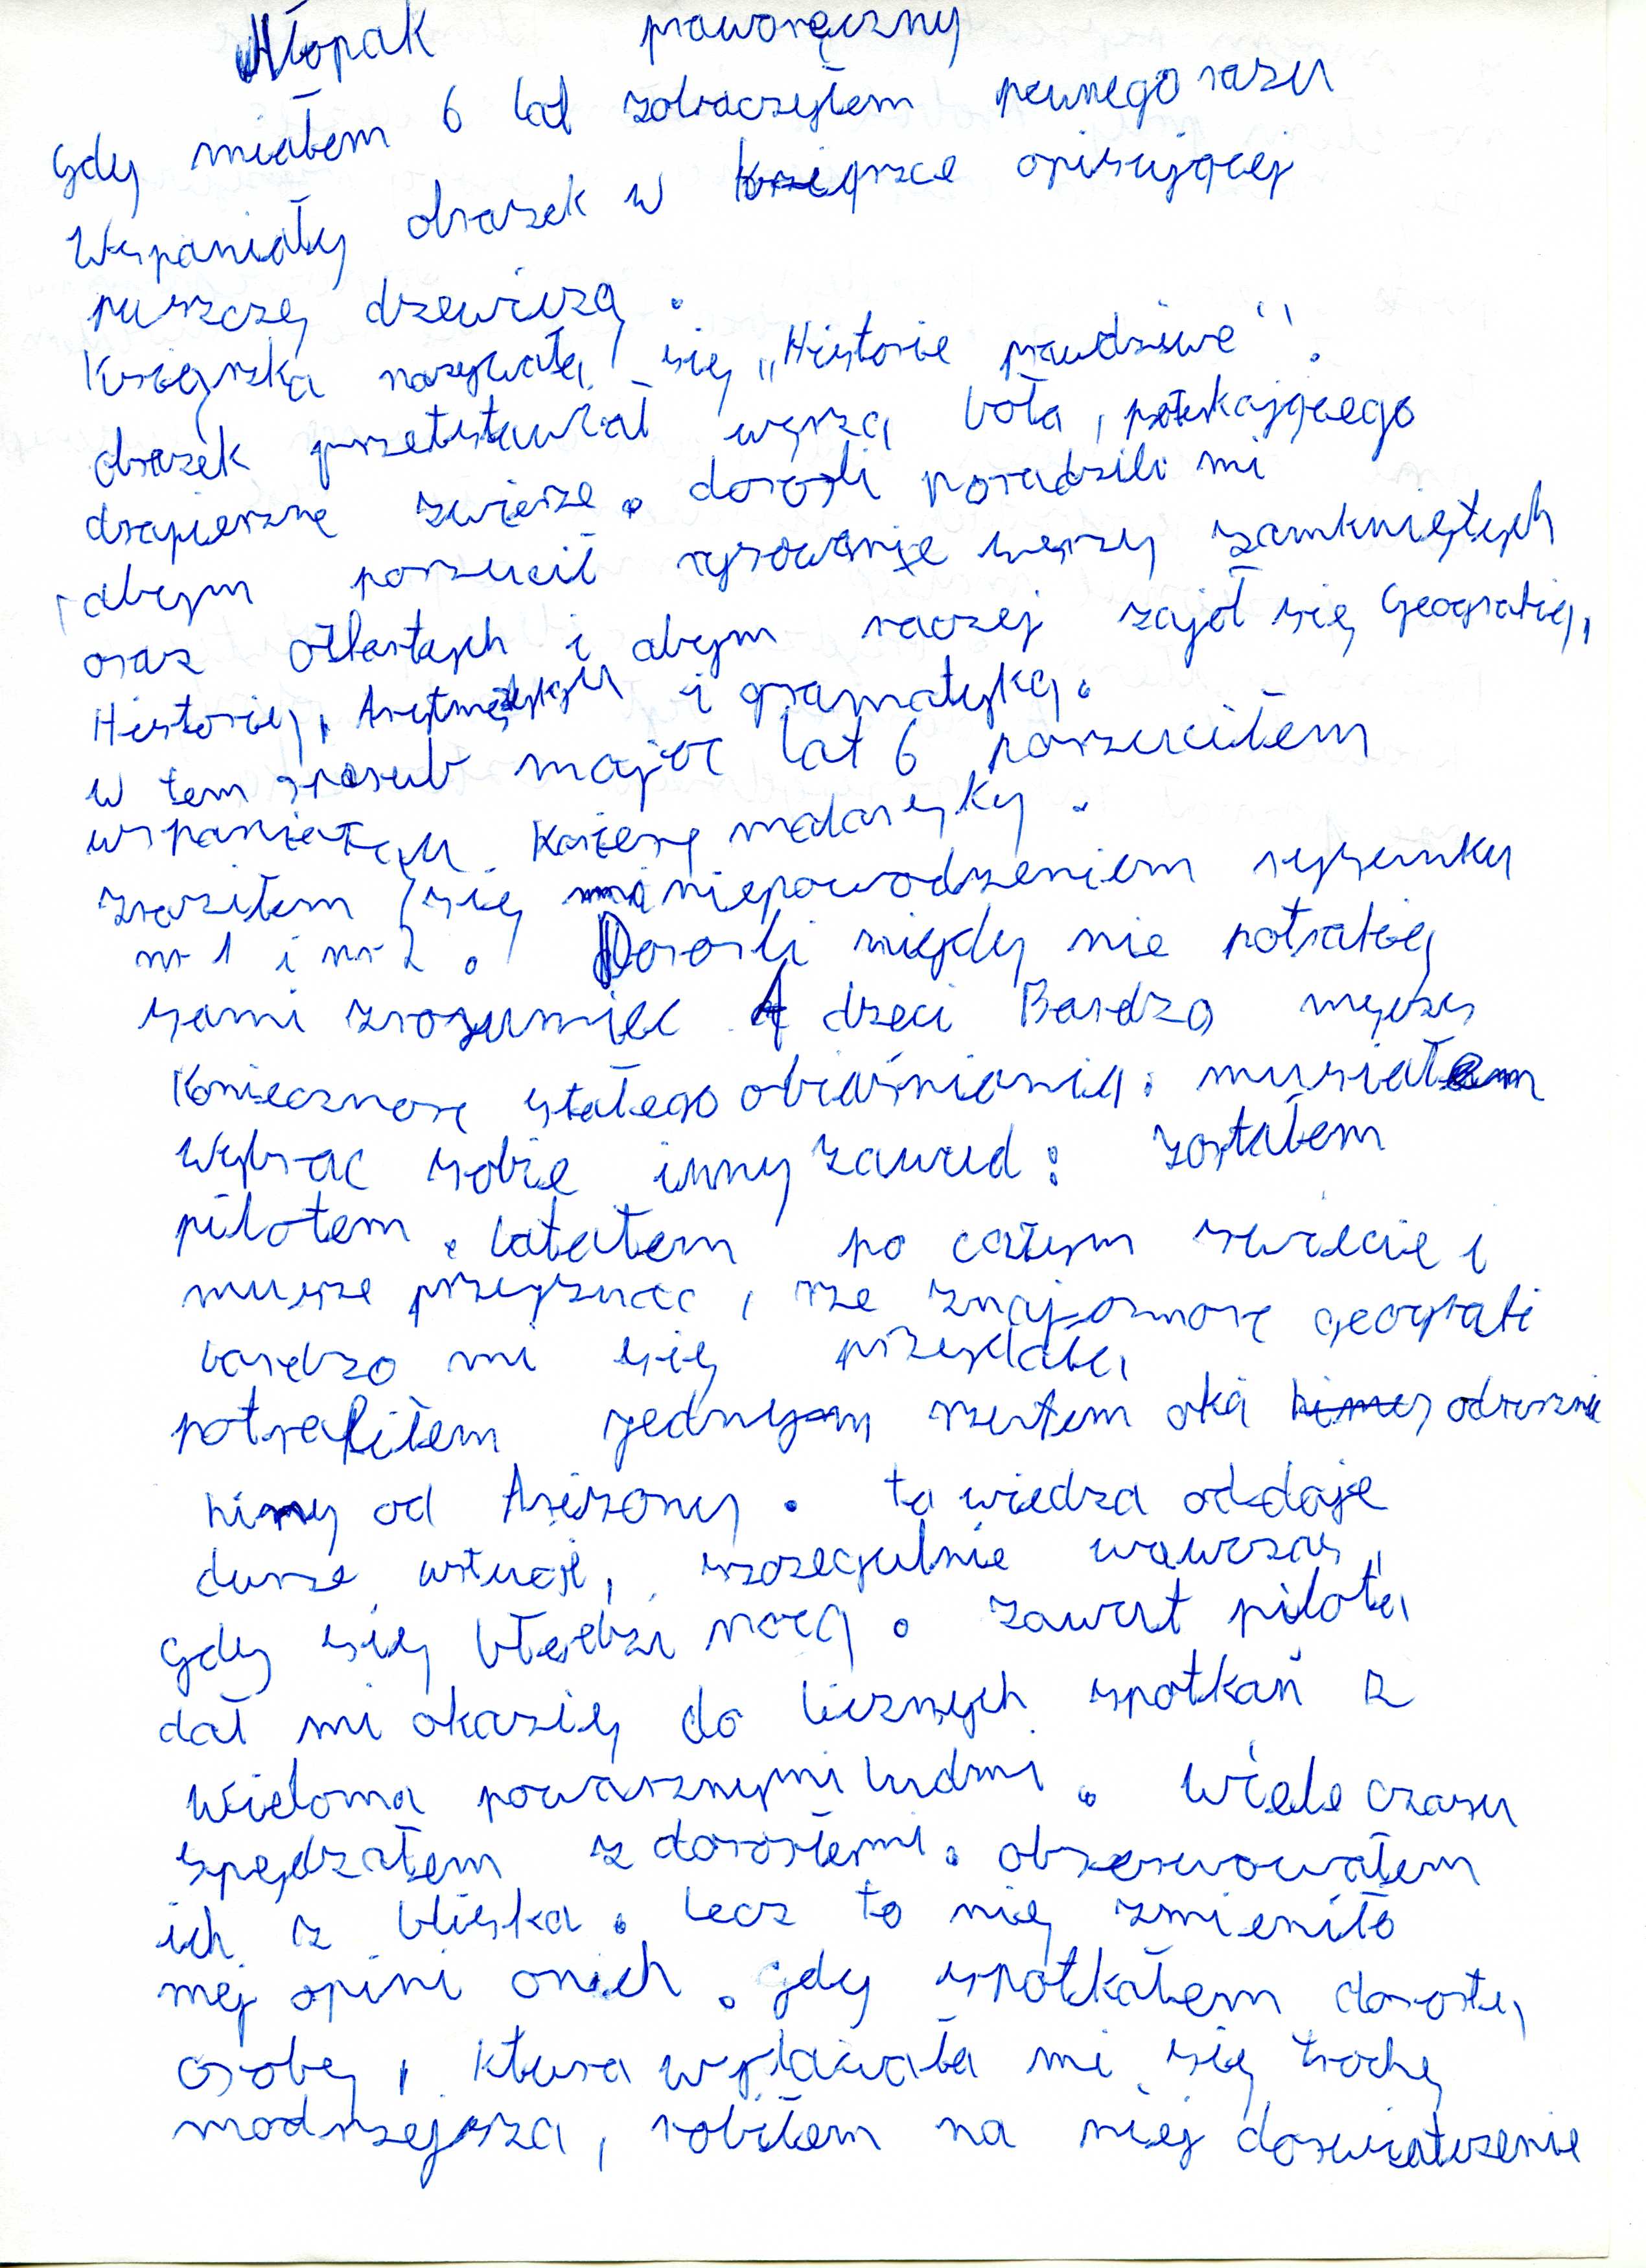 Hłopak praworęczny
Gdy miałem 6 lat zobaczyłem pewnego razu
Wspaniały obrazek w ksiąrzce opisującej
puszczę dzewiczą.
Ksiąrzka nazywała się „Historie prawdziwe".
obrazek przetstawiał węrza boła, połukającego
drapierzne zwierze. dorośli poradzili mi
abym porzucił rysowanie węrzy zamkniętych
oraz otfartych i abym raczej zajoł się Geografią,
Historią, Arytmetyką i gramatyką.
w tem sposub mając lat 6 porzuciłem
wspaniałą karierę malarsky.
zraziłem się niepowodzeniem rysunku
nr 1 i nr 2. Dorośli nigdy nie potrafią
sami zrozumieć A dzeci Bardzo męczy
Konieczność stałego obiaśniania. musiałem
Wybrac sobie inny zawud: zostałem
pilotem. latałem po całym swiecie i
musze przyznać, rze znajomość geografi
bardzo mi się przydała
potrafiłem jednym rzutem oka odruznic
hiny od Arizony. ta wiedza oddaje
durze usługi, szczegulnie wuwczas,
gdy się błądzi nocą. zawut pilota
dał mi okazię do licznych spotkań z
Wieloma powarznymi ludmi. Wiele czasu
spędzałem z dorosłemi. obserwowałem
ich z bliska. lecz to nie zmieniło
mej opini onich. gdy spotkałem dorosłą
osobę, ktura wydawała mi się trochę
modrzejsza, robiłem na niej doswiatczenie